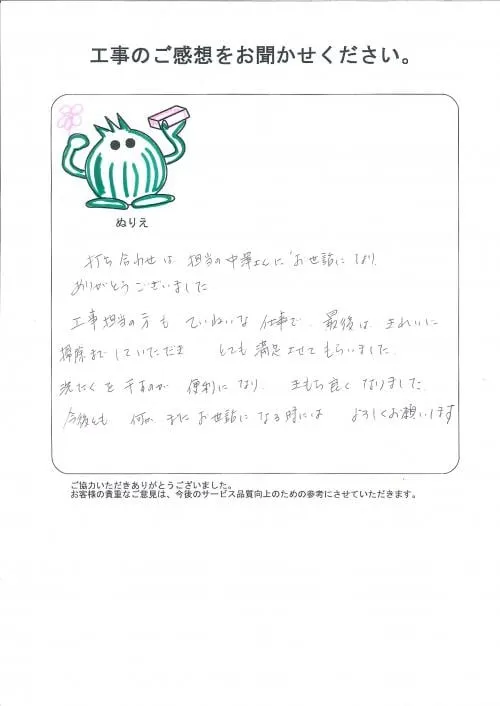 工事のご感想をお聞かせください。
ぬりえ
打ち合わせは 担当の中華さんに お世話になり
ありがとうございました
工事担当の方も ていねいな 仕事で、最後は きれいに
掃除までしていただき とても 満足させてもらいました。
洗たくを干すのが 便利になり、 きもち良くなりました。
今後とも 何か またお世話になる時には よろしくお願いします
ご協力いただきありがとうございました。
お客様の貴重なご意見は、今後のサービス品質向上のための参考にさせていただきます。